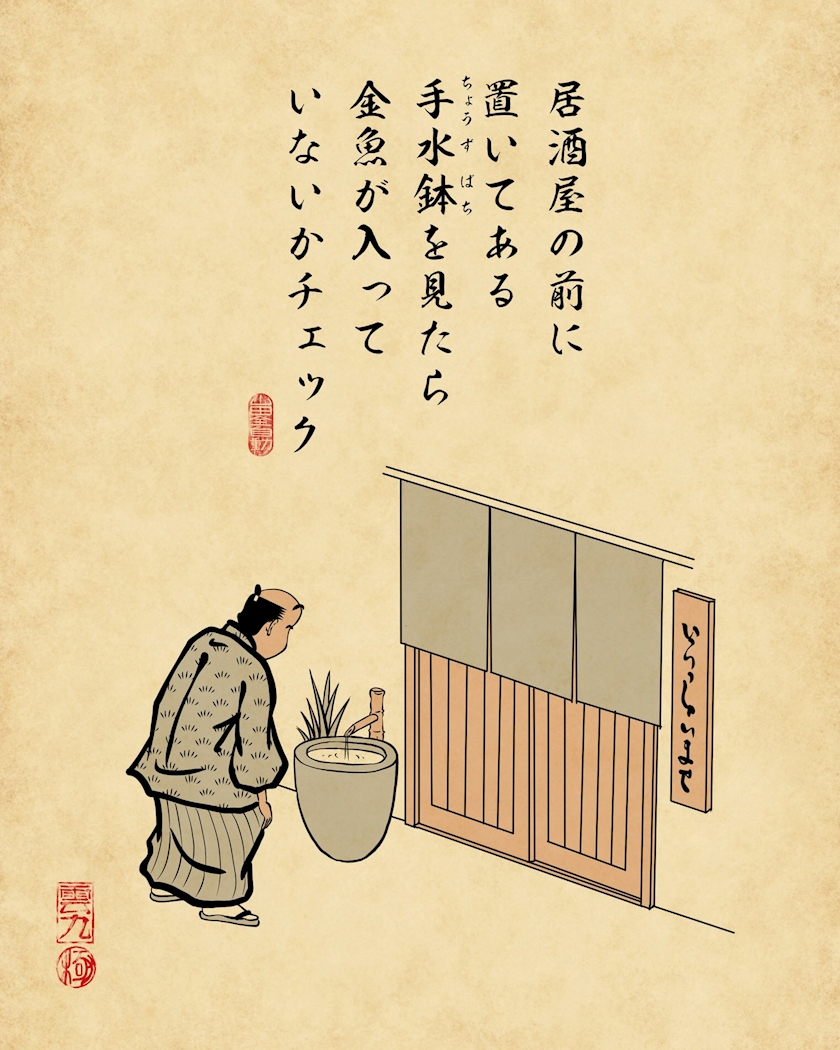 居酒屋の前に
置いてある
手水鉢を見たら
ちょうずばち
金魚が入って
いないかチェック
いらっしゃいませ